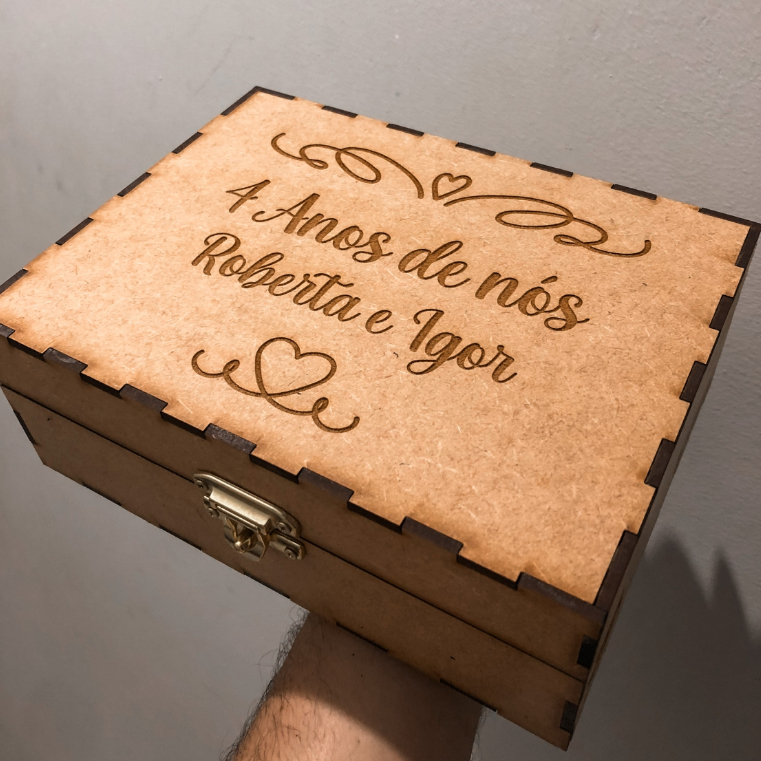 4 Anos de nós
Roberta e Igor